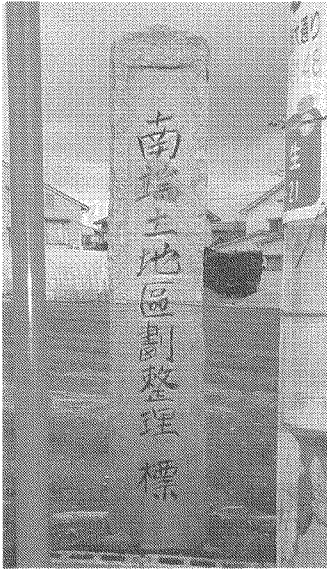 南端土地區劃整理標